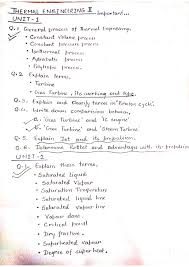 THERMAL ENGINEERING II Important...
UNIT-1
Q.1 General process of Thermal Engineering.
• Constant Volume process
• Constant pressure process
• Isothermal process
• Adiabatic process
• Polytropic process.
Q.2 Explain terms.
• Turbine
• Gas Turbine, its working and
Q.3 Explain and Classify terms of
Q.4 'Gas Turbine' and 'IC engine'
• 'Gas Turbine' and 'Steam Turbine'
Q.5 Explain Jet and its propulsion
Q.6 Rocket and Advantages with its propulsion
UNIT-1
Q.1 Explain these terms.
• Saturated liquid
• Saturated Vapour
• Saturation Temperature
• Saturated liquid line
• Saturated Vapour line
• Vapour dome
• Critical point
• Dry fraction
• Superheated Vapour
• Degree of superheat